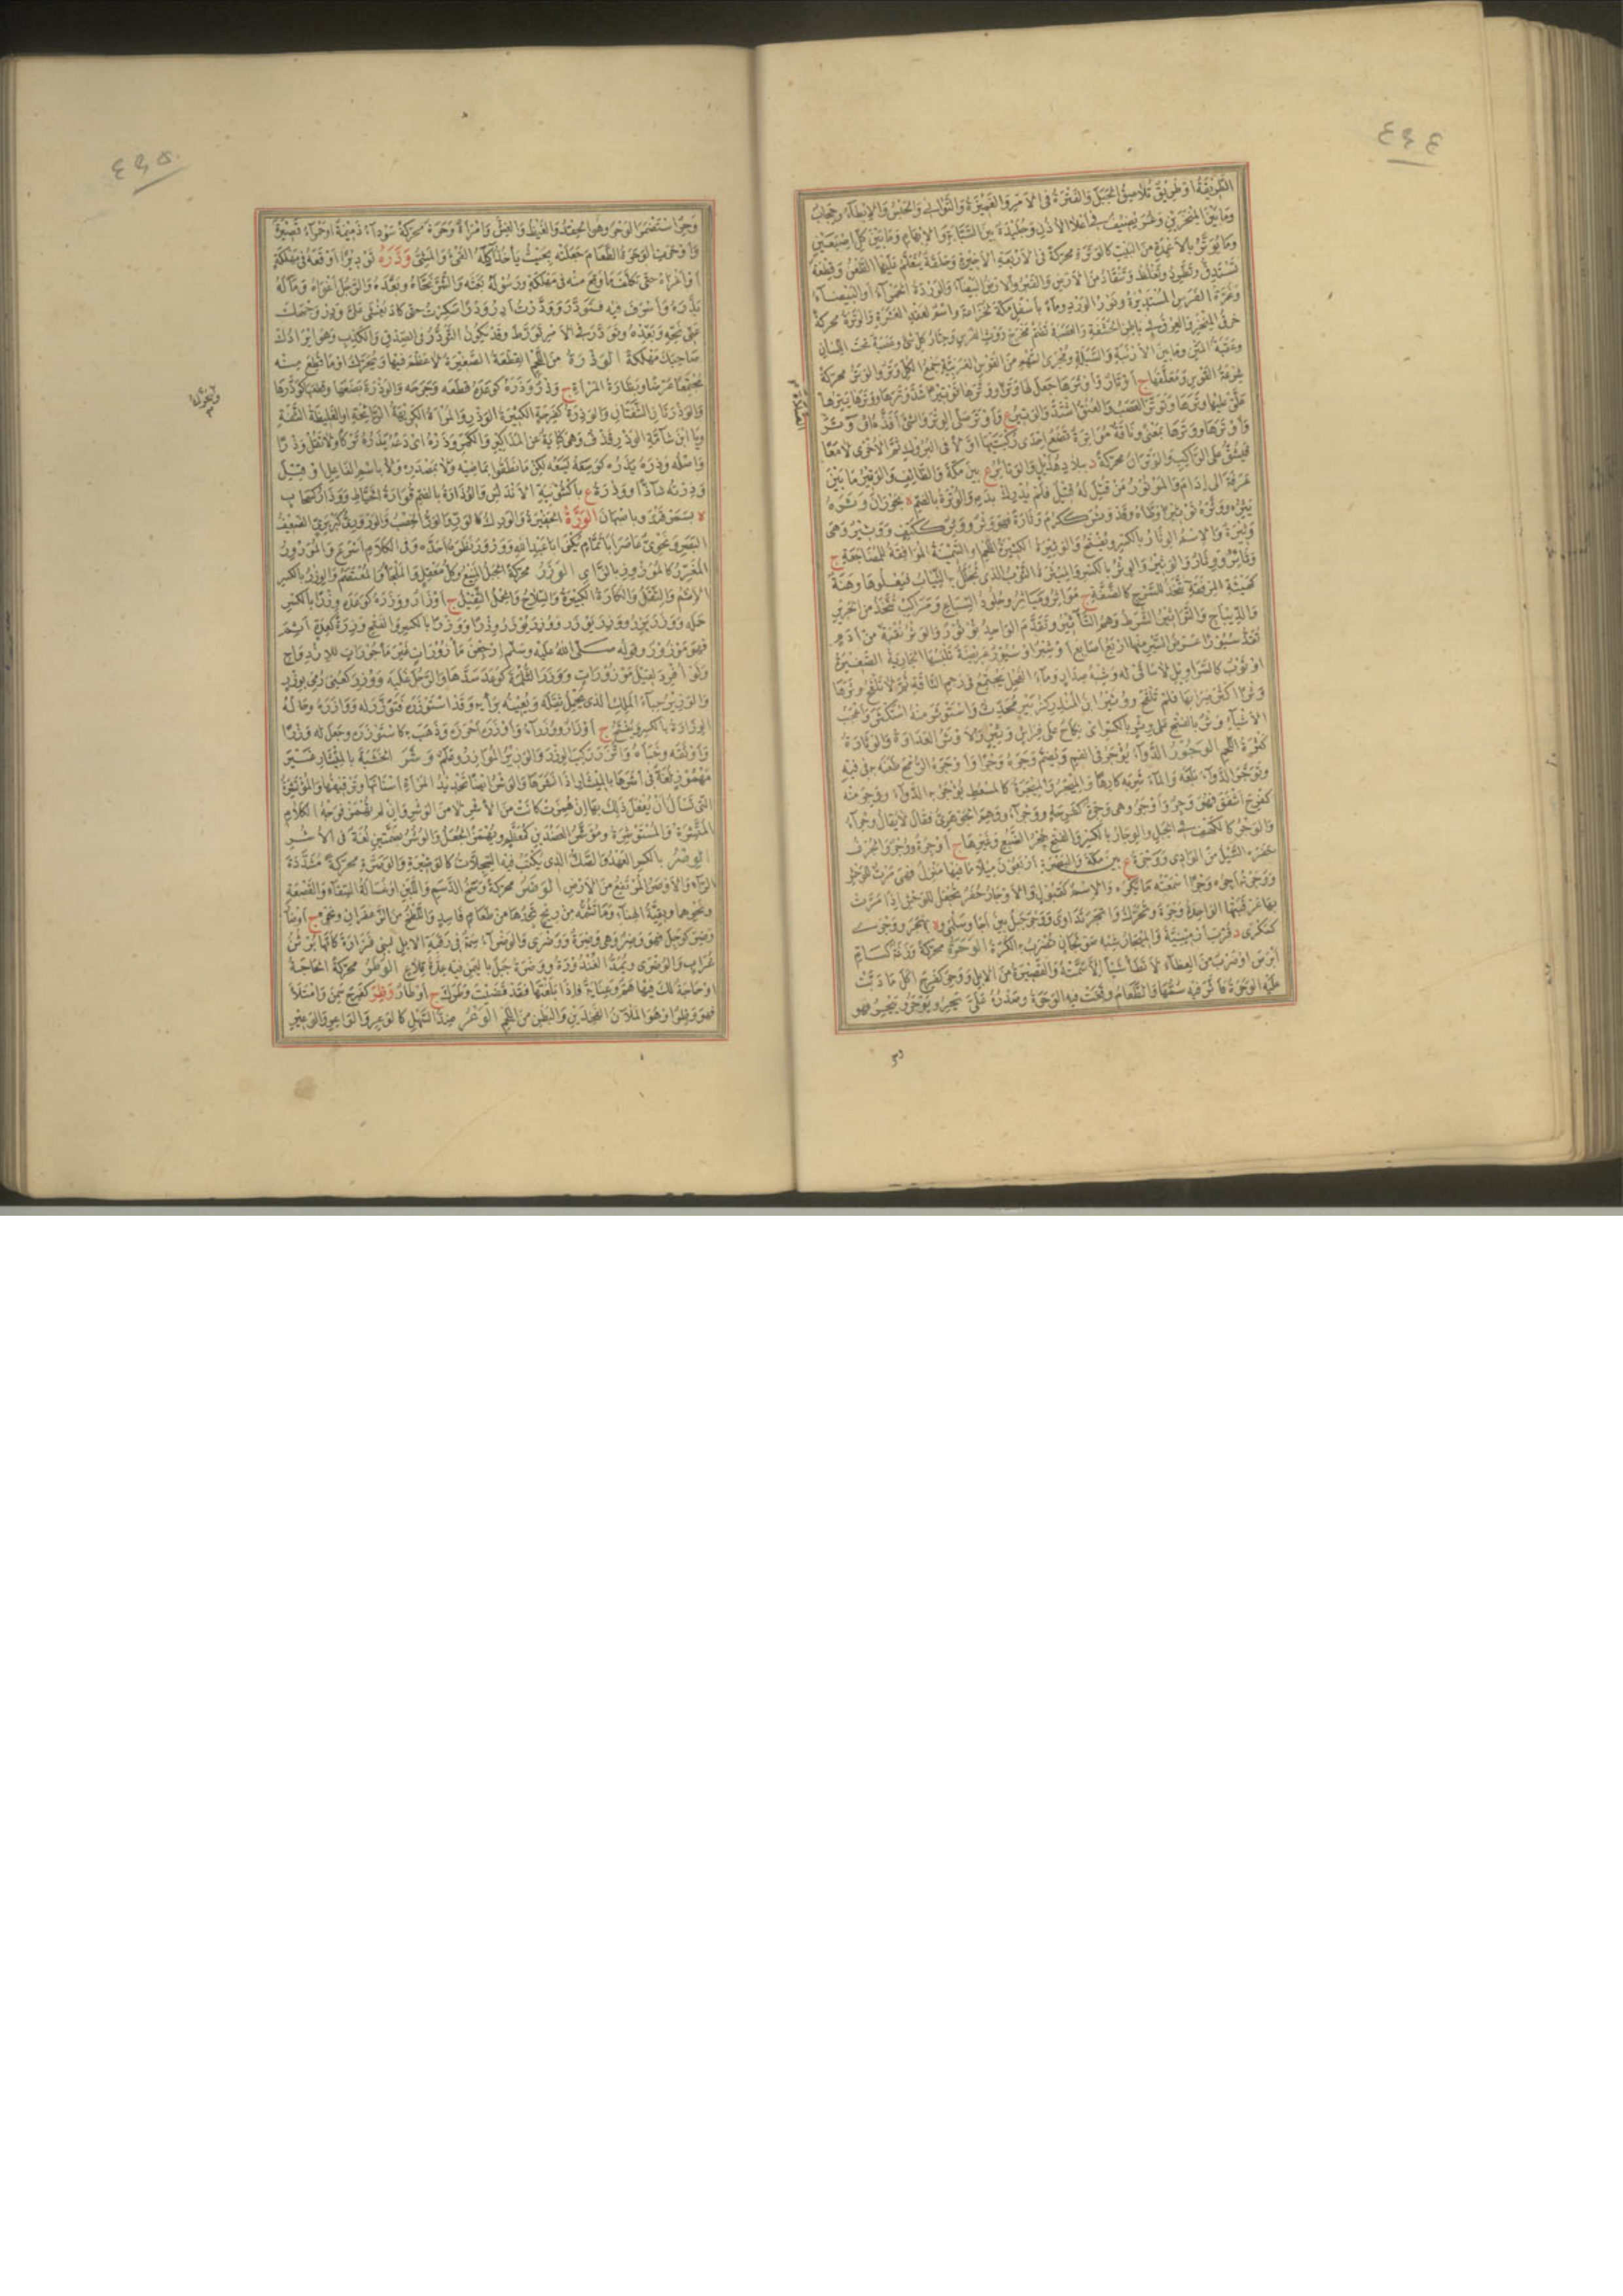 ٤٩٤
الطريقة او طريق تلاصق الجبل والفترة في الامر والغميزة والتوانى والحبس والابطاء وحجاب
وما بين المنخرين وغريضيف في اعلا الاذن وجليدة بين السبابة والابهام وما بين كل اصبعين
وما يوتر بالاعمدة من البيت كالوترة محركة في الاربعة الاخيرة وحلقة يتعلم عليها الطعن وقطعة
تستدق وتطرد وتغلظ وتنقاد من الارض والقبر والارض البيضاء والوردة الحمراء او البيضاء
وغرة الفرس المستديرة ونور الورد وماء باسفل مكة لخزاعة واسم لعقد العشرة والوترة محركة
حرف المنخر والعرق في باطن الحشفة والعصبة تضم مخرج روث الفرس وحتار كل شئ وعصبة تحت اللسان
وعقبة المتن وما بين الارنبة والسبلة ومجرى السهم من القوس العربية جمع الكل وتر والوتر محركة
شرعة القوس ومعلقها ج اوتار واوترها جعل لها وترا ووترها توتيرا شد وترها ووترها يترها
علق عليها وترها وتوتر العصب والعنق اشتد والوتير ع واوتر صلى الوتر والشئ افذه او وتر
واوترها ووترها بمعنى وناقة مواترة تضع احدى ركبتيها اولا في البروك ثم الاخرى لا معا
فيشق على الراكب والوتران محركة د ببلاد هذيل والوتائر ع بين مكة والطائف والوتير ما بين
عرفة الى ادام والموتور من قتل له قتيل فلم يدرك بدمه والوترة بالضم ة بحوران وتره
يثره ووثره توثيرا وطاه وقد وثر ككرم وثارة فهو وثر ووثر ككتف ووثير وهى
وثيرة والاسم الوثار بالكسر ويفتح والوثيرة الكثيرة اللحم والسمينة الموافقة للمضاجعة ج
وثائر ووثار والوثير والوثر بالكسر والميثرة الثوب الذى تجلل به الثياب فيعلوها وهنة
كهيئة المرفقة تتخذ للسرج كالصفة ج مواثر ومياثر وجلود السباع ومراكب تتخذ من الحرير
والديباج والتواثير الشرط وهم التآثير وتقدم الواحد تؤثور والوثر نقبة من ادم
تقد سيورا عرض السير منها اربع اصابع او شبر او سيور عريضة تلبسها الجارية الصغيرة
او ثوب كالسراويل لا ساقى له وشبه صدار وماء الفحل يجتمع في رحم الناقة ثم لا تلقح وثرها
وثرا اكثر ضرابها فلم تلقح ووثير ابن المنذر كزبير محدث واستوثر منه استكثر واعجب
الاشياء وثر بالفتح على وثر بالكسر اى نكاح على فراش وثير والاوثر العداوة والوثارة
كثرة اللحم الوجور الدواء يوجر في الفم ويضم وجره وجرا واوجره الرمح طعنه به في فيه
وتوجر الدواء بلعه والماء شربه كارها والميجر والميجرة كالمسعط يوجر به الدواء ووجر منه
كفرح اشفق فهو وجر واوجر وهى وجرة كفرحة ووجراء ووهم الجوهرى فقال لا يقال وجراء
والوجر كالكهف في الجبل والوجار بالكسر والفتح جحر الضبع وغيرها ج اوجرة ووجر والجرف
حفره السيل من الوادى ووجرة ع بين مكة والبصرة اربعون ميلا ما فيها منزل فهى مرت للوحش
ووجرته اجره وجرا اسمعته ما يكره والاسم كقبول والاوجار حفر تجعل للوحش اذا مرت
بها عرقبتها الواحدة وجرة وتحرك واتجر تداوى ووجر جبل بين اجا وسلمى و ة بهجر ووجرى
كسكرى د قرب ارمينية والميجار شبه صولجان تضرب به الكرة الوحرة محركة وزغة كسام
ابرص او ضرب من العظاء لا تطأ شيئا الا سمته والقصيرة من الابل ووحر كفرح اكل ما دبت
عليه الوحرة فاثر فيه سمها والطعام وقعت فيه الوحرة وصدره على يحر ويوحر وييحر فهو
وحر
٤٩٥
وحرا استضمر الوحر وهو الحقد والغيظ والغش وامرأة وحرة محركة سوداء دميمة او حمراء قصيرة
واوحرت الوحرة الطعام جعلته بحيث ياخذ آكله القئ والمشى ودره توديرا اوقعه في مهلكة
او اغراه حتى تكلف ما وقع منه في مهلكة ورسوله بعثه والشر نحاه وبعده والرجل اغواه وماله
بذره واسرف فيه فتودر وودرت ادر ودرا سكرت حتى كاد يغشى على ودر وجهك
عنى نحه وبعده وتودر في الامر تورط وقد يكون التودر في الصدق والكذب وهو ايرادك
صاحبك مهلكة الوذرة من اللحم القطعة الصغيرة لا عظم فيها ويحرك او ما قطع منه
مجتمعا عرضا وبظارة المرأة ج وذر ووذره كوعده قطعه وجرحه والوذرة بضعها وقطعها كوذرها
والوذرتان الشفتان والوذرة كفرحة الكثيرة الوذر والمرأة الكريهة الرائحة او الغليظة الشفة
ويا ابن شامة الوذر قذف وهى كناية عن المذاكير والكمر وذره اى دعه يذره تركا ولا تقل وذرا
واصله وذره يذره كوسعه يسعه لكن ما نطقوا بماضيه ولا بمصدره ولا باسم الفاعل او قيل
وذرته شاذا ووذرة ع باكشونية الاندلس والوذارة بالضم قوارة الخياط ووذار كسحاب
ة بسمرقند وباصبهان الورة الحفيرة والورك كالور والورة الخصب والورورى كبربرى الضعيف
البصر ونحوى عاصر ابا تمام يكنى ابا عبد الله وورور نظره احده وفى الكلام اسرع والمورور
المغرر كالموزوز بالزاى الوزر محركة الجبل المنيع وكل معقل والملجأ والمعتصم والوزر بالكسر
الاثم والثقل والكارة الكبيرة والسلاح والحمل الثقيل ج اوزار ووزره كوعده وزرا بالكسر
حمله ووزر يزر ووزر يوزر ووزر يوزر وزرا ووزرا بالكسر والفتح وزرة كعدة اثم
فهو موزور وقوله صلى الله عليه وسلم ارجعن مأزورات غير مأجورات للازدواج
ولو افرد لقيل موزورات ووزر الثلمة كوعد سدها والرجل غلبه ووزر كعنى رمى بوزر
والوزير حبأ الملك الذى يحمل ثقله ويعينه برأيه وقد استوزره فتوزر له ووازره وحاله
الوزارة بالكسر ويفتح ج اوزار ووزراء واوزره احرزه وذهب به كاستوزره وجعل له وزرا
واوثقه وخبأه واتزر ركب الوزر والوزير الموازر وعلم وشر الخشبة بالميشار غير
مهموز لغة في اشرها بالمنشار اذا نشرها والوشر ايضا تحديد المرأة اسنانها وترقيقها والمؤتشرة
التى تسأل ان يفعل ذلك بها ان همزت كانت من الاشر لا من الوشر وان لم تهمز فوجه الكلام
المتشرة والمستوشرة وموشر العضدين كمعظم ويهمز الجعل والوشر بضمتين لغة في الاشر
الوصر بالكسر العهد والصك الذى يكتب فيه السجلات كالوصيرة والوصرة محركة مشددة
الراء والاوصر المرتفع من الارض الوضر محركة وسخ الدسم واللبن او غسالة السقاء والقصعة
ونحوهما وبقية الهناء وما تشمه من ريح تجدها من طعام فاسد واللطخ من الزعفران ونحوه ج اوضار
وضر كوجل فهو وضر وهى وضرة ووضرى والوضراء سمة في رقبة الابل لبنى فزارة كانها برثن
غراب والوضرى وتمد الفندورة ووضرة جبل باليمن فيه عدة قلاع الوطر محركة الحاجة
او حاجة لك فيها هم وعناية فاذا بلغتها فقد قضيت وطرك ج اوطار وظر كفرح سمن وامتلأ
فهو وظر او هو الملآن الفخذين والبطن من اللحم الوعر ضد السهل كالوعر والواعر والوعير